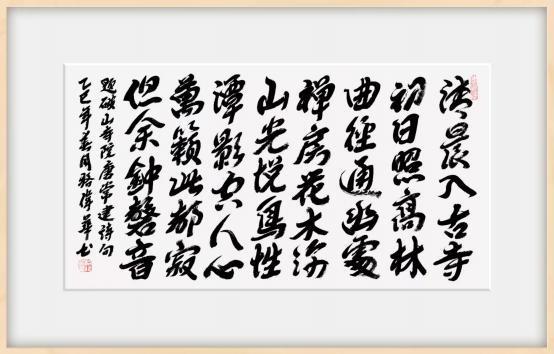 清晨入古寺
初日照高林
曲径通幽处
禅房花木深
山光悦鸟性
潭影空人心
萬籁此都寂
但余钟磬音
题破山寺院唐常建诗句
乙巳年春月骆伟华书